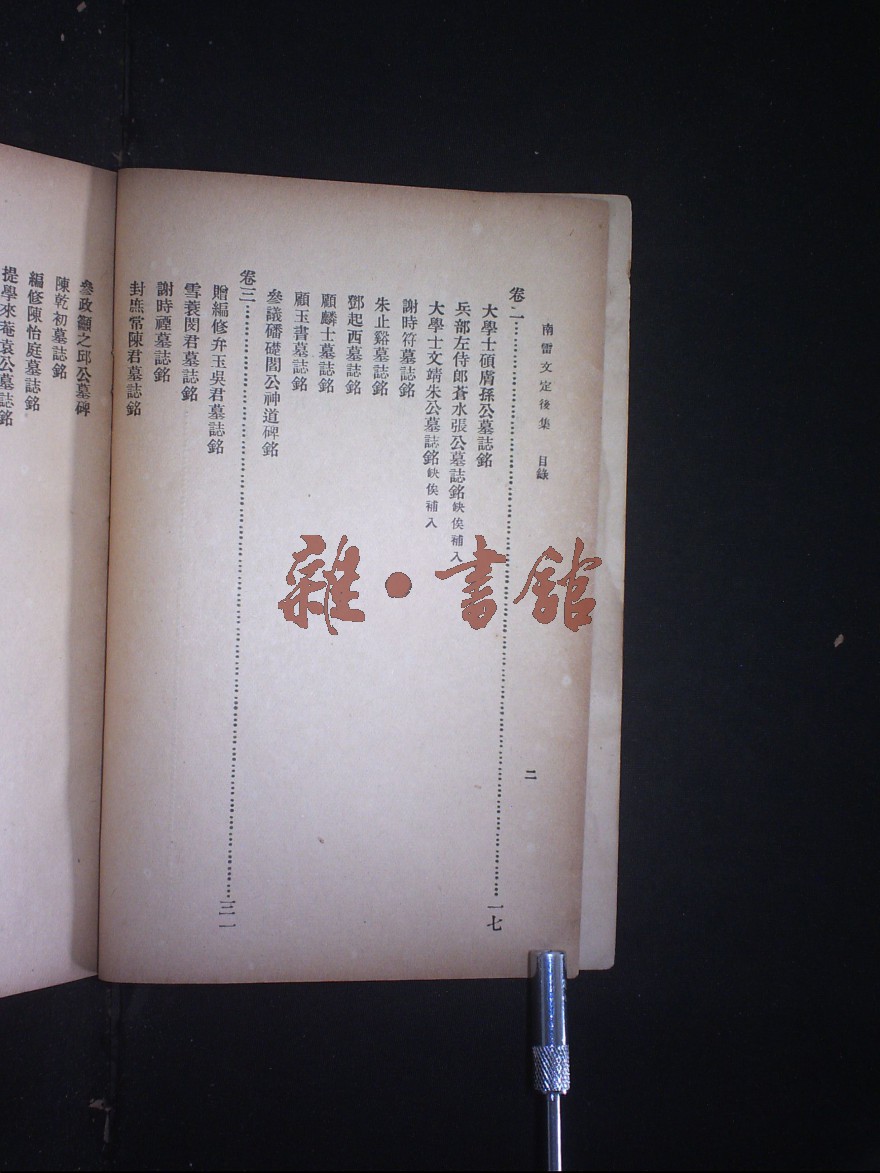 南雷文定後集　目錄
二
卷二……一七
大學士碩膚孫公墓誌銘
兵部左侍郎蒼水張公墓誌銘缺俟補入
大學士文靖朱公墓誌銘缺俟補入
謝時符墓誌銘
朱止谿墓誌銘
鄧起西墓誌銘
顧麟士墓誌銘
顧玉書墓誌銘
參議磻礎閻公神道碑銘
卷三……三一
贈編修弁玉吳君墓誌銘
雪蓑閔君墓誌銘
謝時禋墓誌銘
封庶常陳君墓誌銘
參政籲之邱公墓碑
陳乾初墓誌銘
編修陳怡庭墓誌銘
提學來菴袁公墓誌銘
雜·書館